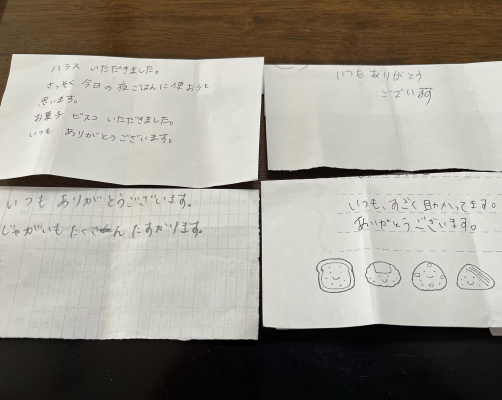 ハラス いただきました。
さっそく 今日の夜ごはんに使おうと
思います。
お菓子 ビスコ いただきました。
いつも ありがとうございます。
いつもありがとう
ございます
いつも ありがとうございます。
じゃがいも たくさん たすかります。
いつも、すごく助かってます。
ありがとうございます。